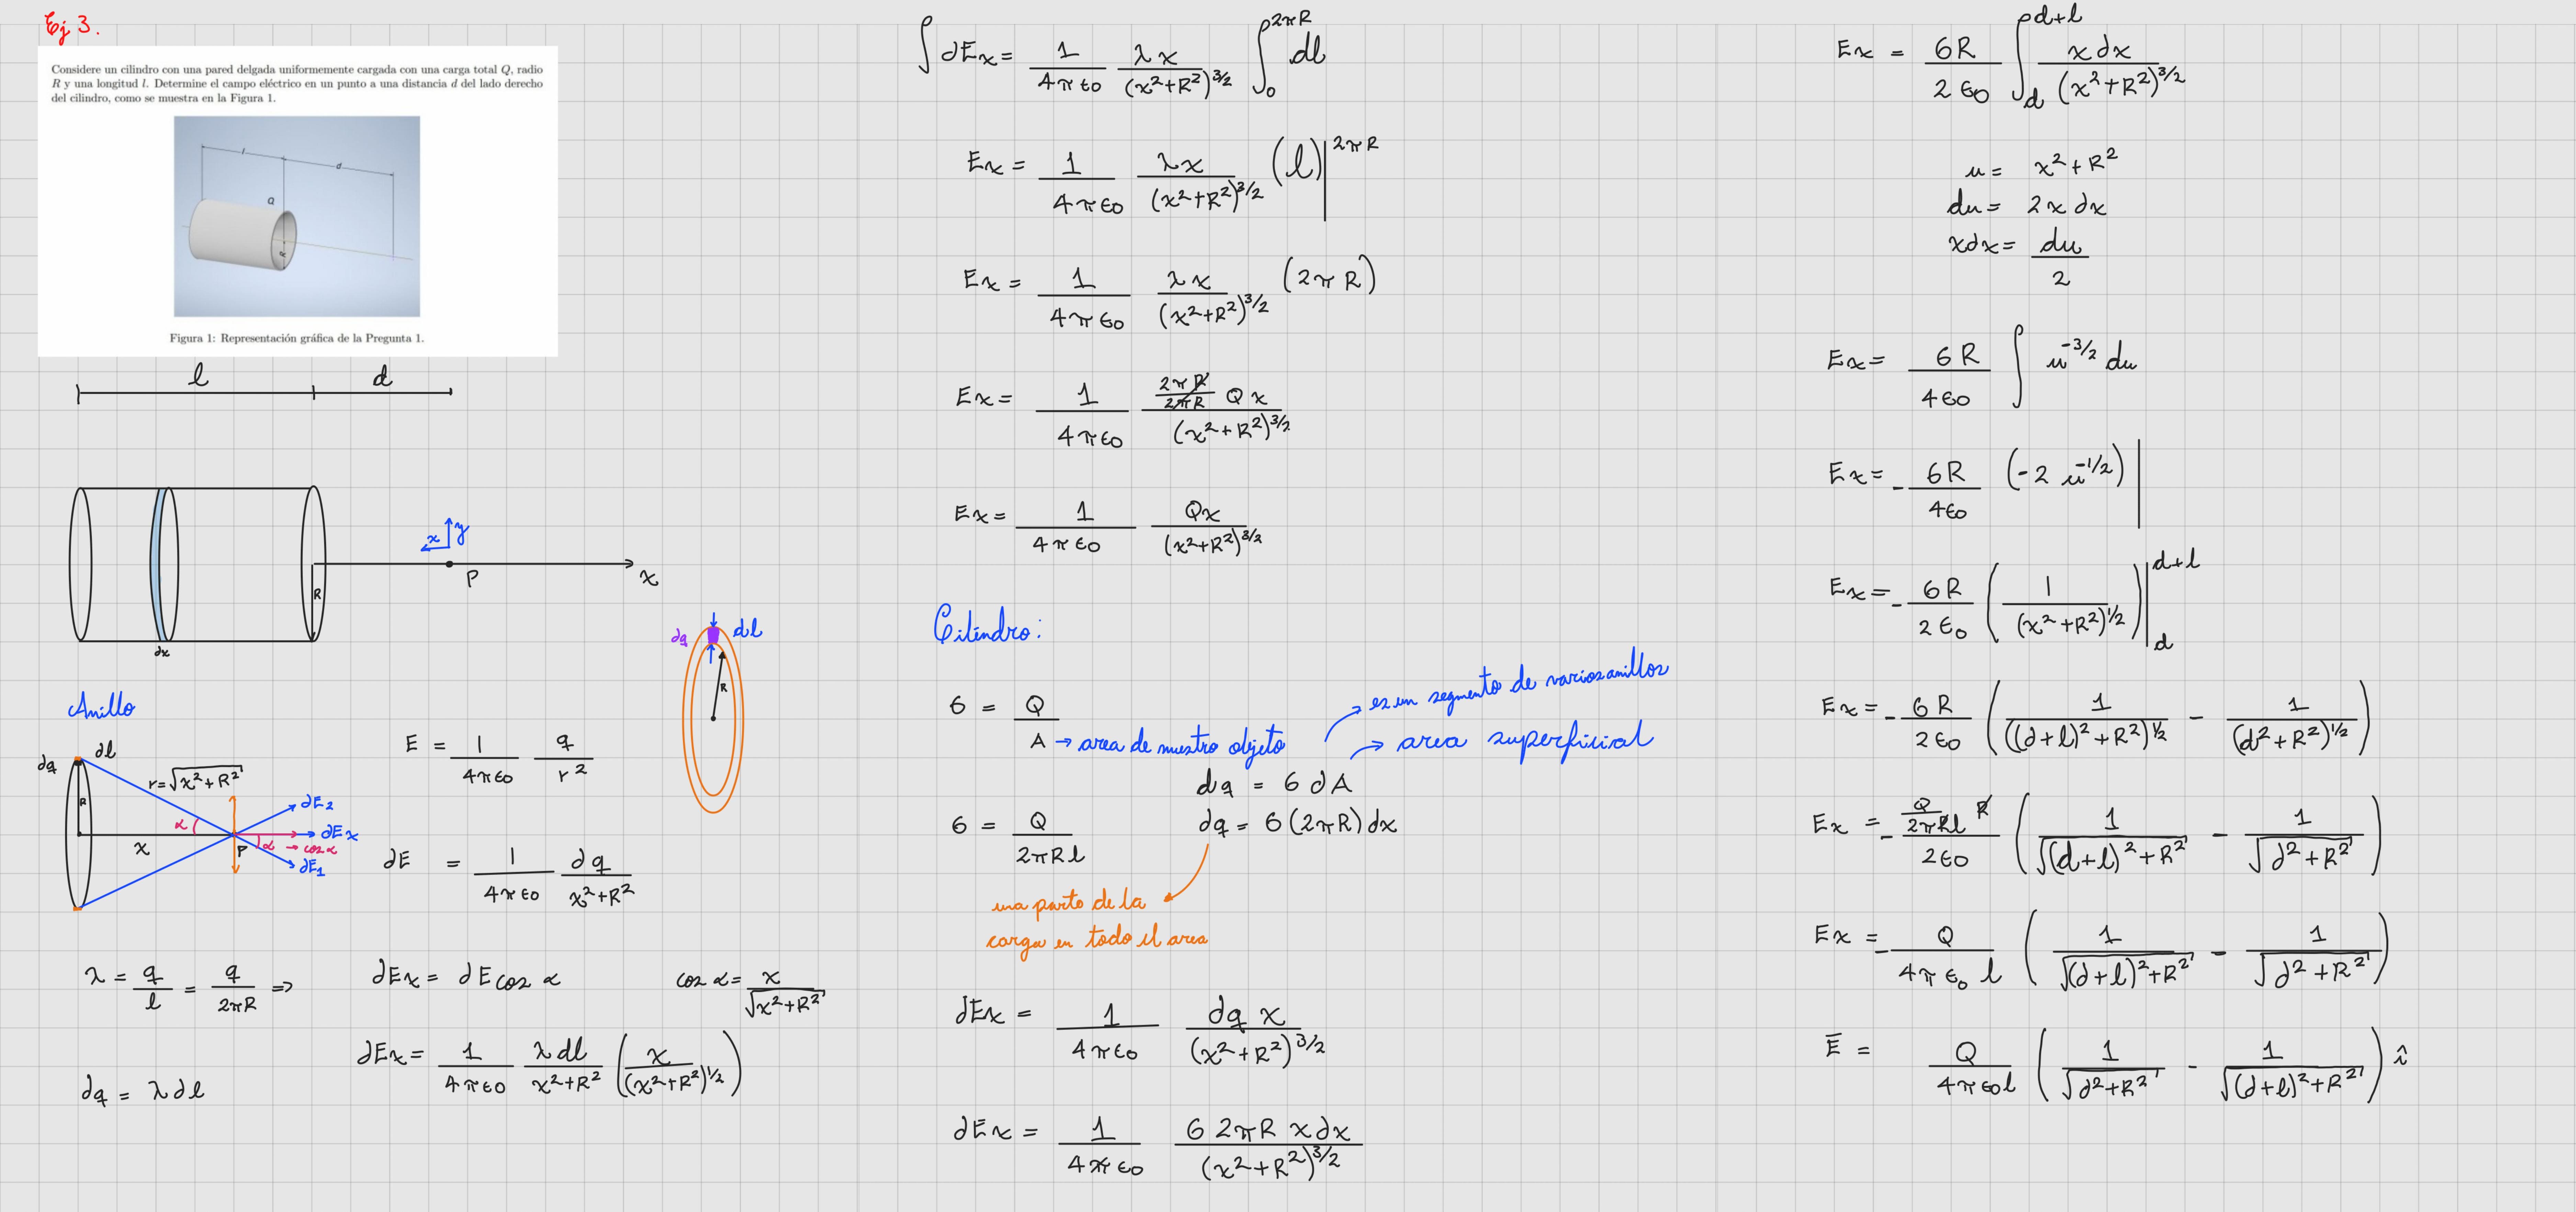 Ej 3.
Considere un cilindro con una pared delgada uniformemente cargada con una carga total Q, radio
R y una longitud l. Determine el campo eléctrico en un punto a una distancia d del lado derecho
del cilindro, como se muestra en la Figura 1.
l
d
Q
R
Figura 1: Representación gráfica de la Pregunta 1.
l d
x y
P
x
R
dx
dq dl
R
Anillo
dq dl
r=√(x²+R²)
R
α
x
P
α → cos α
dE₂
dEx
dE₁
E = 1/(4πϵ0) q/r²
dE = 1/(4πϵ0) dq/(x²+R²)
λ = q/l = q/(2πR) =>
dEx = dE cos α
cos α = x/√(x²+R²)
dq = λ dl
dEx = 1/(4πϵ0) λ dl/(x²+R²) (x/(x²+R²)^1/2)
∫ dEx = 1/(4πϵ0) λx/(x²+R²)^3/2 ∫₀^2πR dl
Ex = 1/(4πϵ0) λx/(x²+R²)^3/2 (l)|^2πR
Ex = 1/(4πϵ0) λx/(x²+R²)^3/2 (2πR)
Ex = 1/(4πϵ0) (2πR/2πR) Qx/(x²+R²)^3/2
Ex = 1/(4πϵ0) Qx/(x²+R²)^3/2
Cilindro:
6 = Q/A → area de nuestro objeto
→ es un segmento de varios anillos
→ area superficial
dq = 6 dA
6 = Q/(2πRl)
dq = 6(2πR)dx
una parte de la
carga en todo el area
dEx = 1/(4πϵ0) dq x/(x²+R²)^3/2
dEx = 1/(4πϵ0) 6 2πR x dx/(x²+R²)^3/2
Ex = 6R/(2ϵ0) ∫_d^d+l x dx/(x²+R²)^3/2
u = x²+R²
du = 2x dx
xdx = du/2
Ex = 6R/(4ϵ0) ∫ u^-3/2 du
Ex = -6R/(4ϵ0) (-2 u^-1/2)|
Ex = -6R/(2ϵ0) (1/(x²+R²)^1/2)|_d^d+l
Ex = -6R/(2ϵ0) (1/((d+l)²+R²)^1/2 - 1/(d²+R²)^1/2)
Ex = -(Q/(2πRl) R)/(2ϵ0) (1/√((d+l)²+R²) - 1/√(d²+R²))
Ex = -Q/(4πϵ0 l) (1/√((d+l)²+R²) - 1/√(d²+R²))
E̅ = Q/(4πϵ0l) (1/√(d²+R²) - 1/√((d+l)²+R²)) î